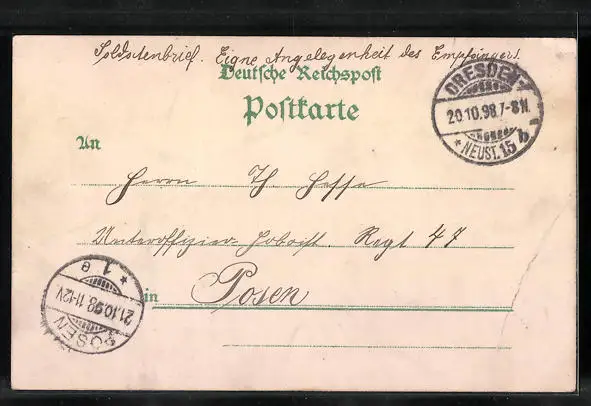 Soldatenbrief. Eigne Angelegenheit des Empfängers.
Deutsche Reichspost
Postkarte
DRESDEN
20.10.98.7-8N.
* NEUST. 15 b
An
Herrn Th. Hesse
Unteroffizier-Hoboist. Regt 47
in Posen
POSEN
21.10.98.11-12V.
* 1 e